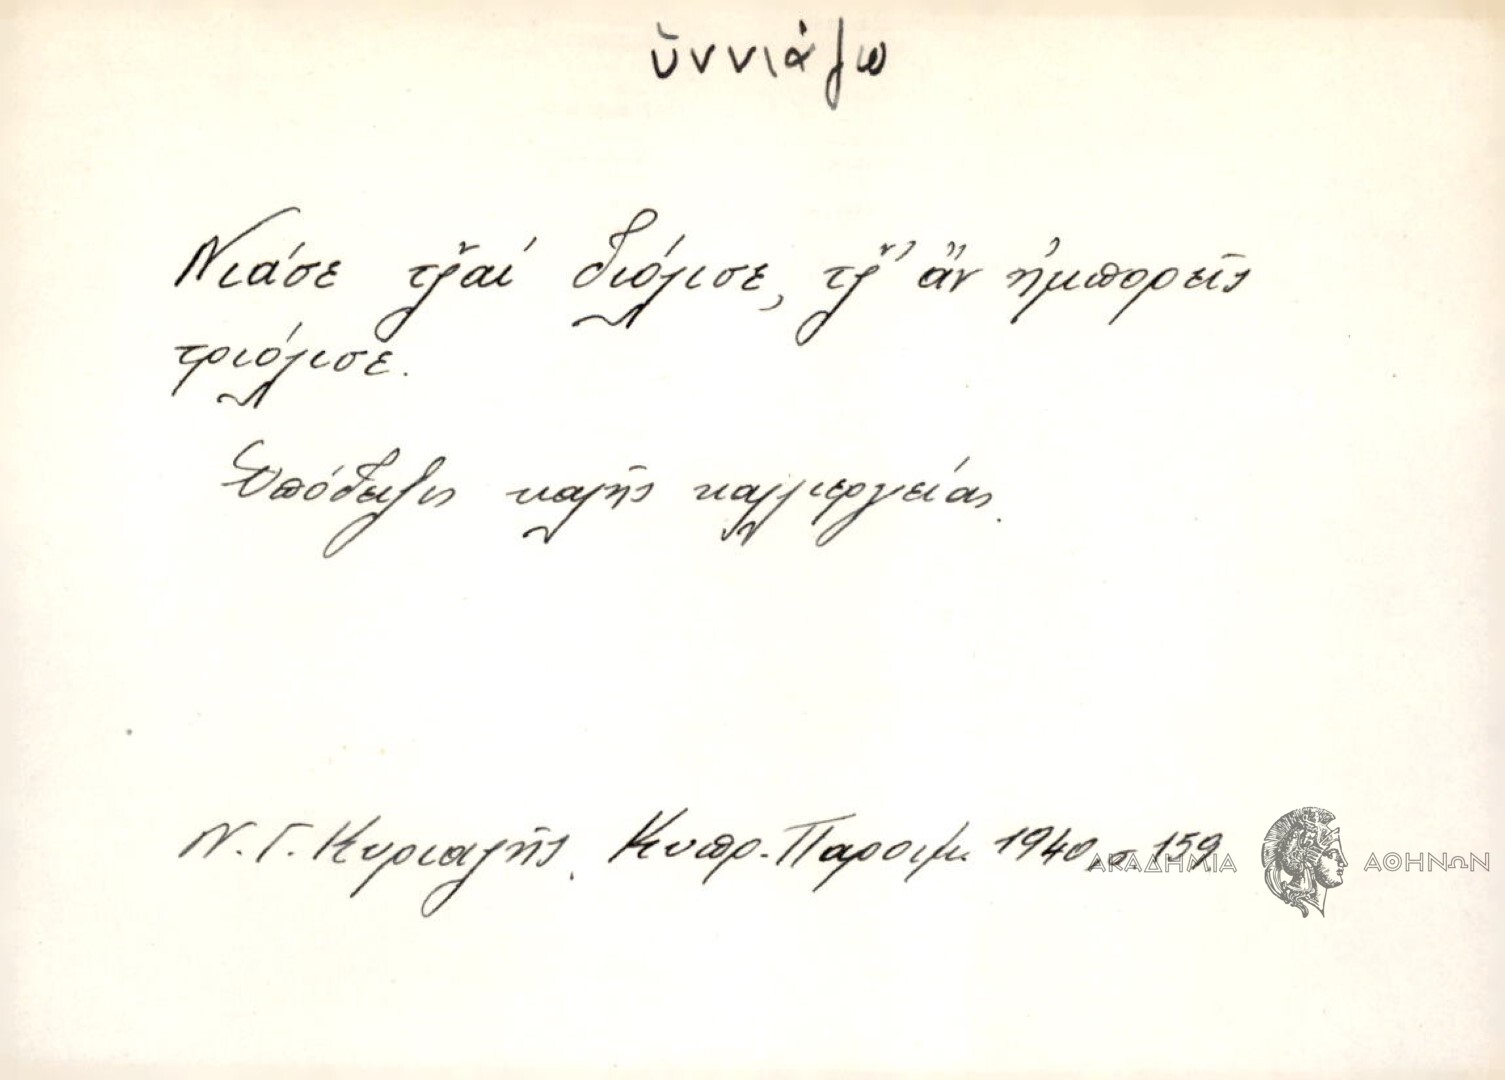 ὑννιάζω
Νιάσε τζ̌αί διόλισε, τζ̌' ἄν ἠμπορεῖς
τριόλισε.
Ὑπόδειξις καλῆς καλλιεργείας.
Ν. Γ. Κυριαζῆς. Κυπρ. Παροιμ. 1940, σ. 159
ΑΚΑΔΗΜΙΑ ΑΘΗΝΩΝ